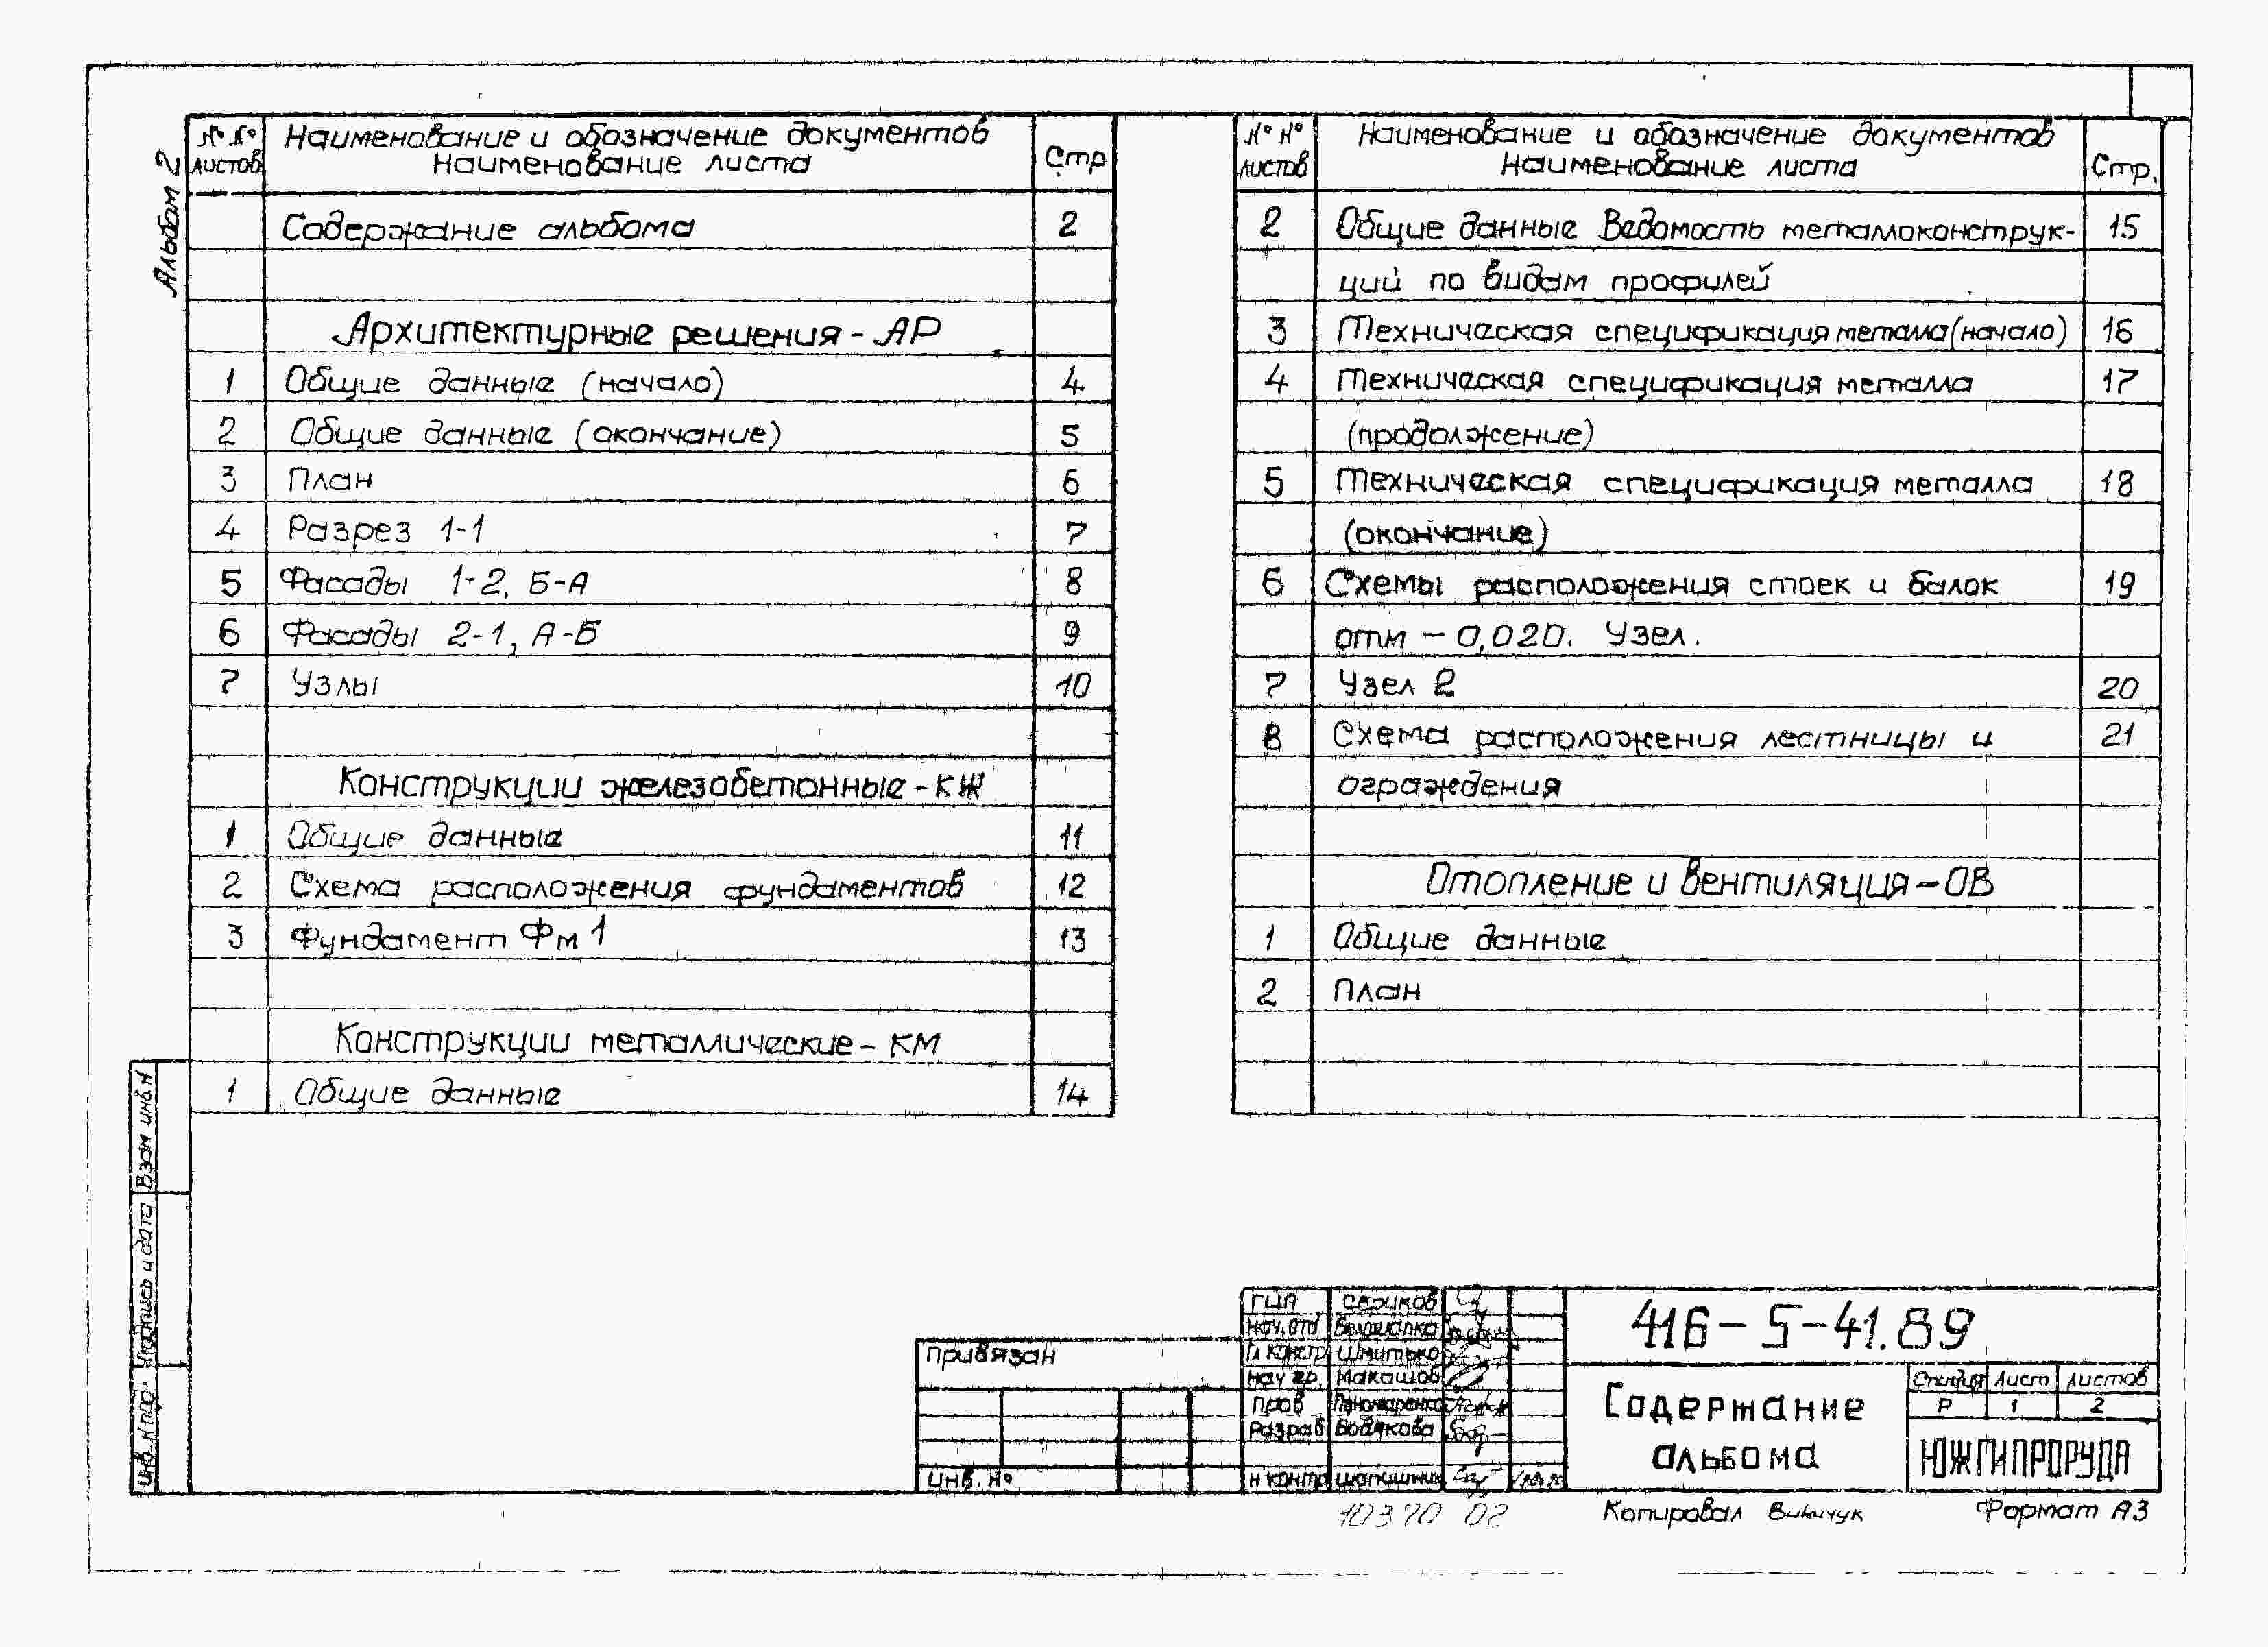 Альбом 2
№ № листов Наименование и обозначение документов Наименование листа Стр
Содержание альбома 2
Архитектурные решения - АР
1 Общие данные (начало) 4
2 Общие данные (окончание) 5
3 План 6
4 Разрез 1-1 7
5 Фасады 1-2, Б-А 8
6 Фасады 2-1, А-Б 9
7 Узлы 10
Конструкции железобетонные - КЖ
1 Общие данные 11
2 Схема расположения фундаментов 12
3 Фундамент Фм 1 13
Конструкции металлические - КМ
1 Общие данные 14
№ № листов Наименование и обозначение документов Наименование листа Стр.
2 Общие данные Ведомость металлоконструк- 15
ций по видам профилей
3 Техническая спецификация металла (начало) 16
4 Техническая спецификация металла 17
(продолжение)
5 Техническая спецификация металла 18
(окончание)
6 Схемы расположения стоек и балок 19
отм - 0,020. Узел.
7 Узел 2 20
8 Схема расположения лестницы и 21
ограждения
Отопление и вентиляция - ОВ
1 Общие данные
2 План
Взам инв. N
Подпись и дата
Инв. N подл
Привязан
Инв. №
ГИП Сериков
Нач. отд Белошапка
Гл констр Шмитько
Нач гр. Макашов
Пров Пономаренко
Разраб Бодякова
Н контр
416-5-41.89
Содержание
альбома
Стадия Лист Листов
Р 1 2
ЮЖГИПРОРУДА
10370 02
Копировал Формат А3